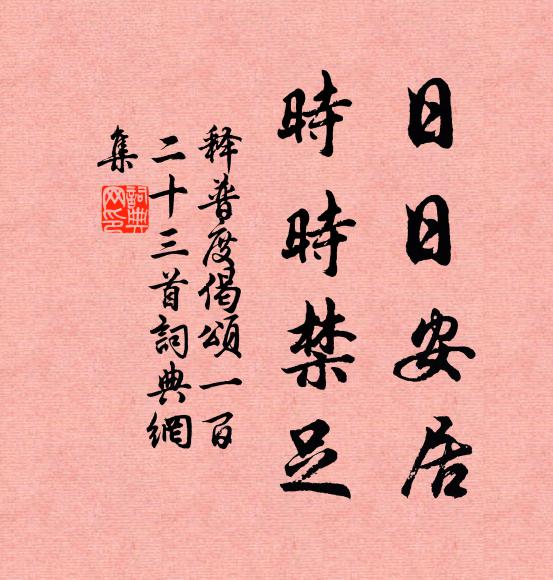 日日安居
時時禁足
释普度偈頌一百
二十三首詞典網
集
詞典
网印